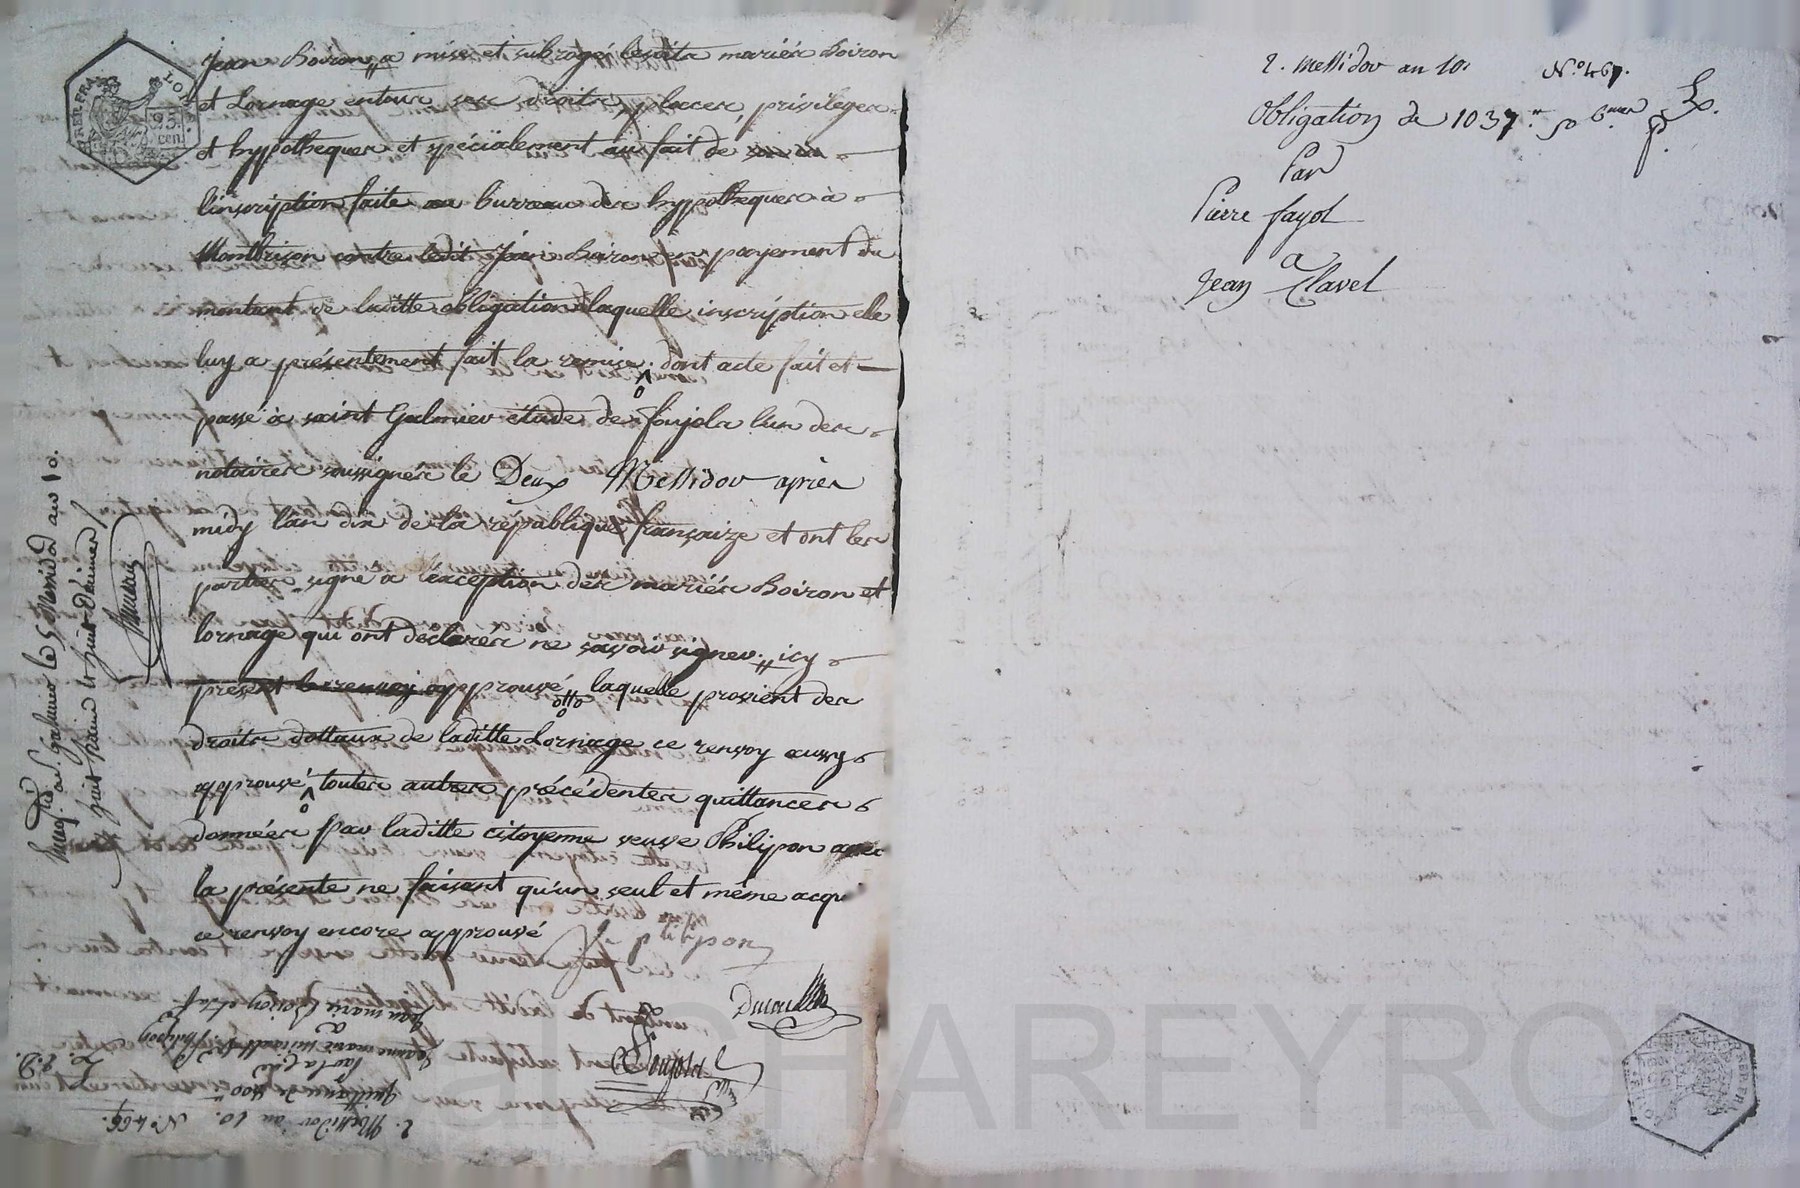 jean Boiron, a mise et subrogé lesdits mariés Boiron
et Lornage entour ses droits, places, privileges
et hypotheques et spécialement au fait de
linscription faite au bureau des hypotheques à
Montbrison contre ledit Jean Boiron en payement du
montant de laditte obligation, laquelle inscription elle
luy a présentement fait la remise, dont acte fait et
passé à saint Galmier étude de foujols l'un des
notaires soussignés le Deux Messidor après
midy l'an dix de la république françaize et ont les
parties signé a l'exception des mariés Boiron et
lornage qui ont déclarés ne savoir signer. icy
présent le renvoy approuvé laquelle provient des
droits dottaux de laditte Lornage ce renvoy aussy
approuvé toutes autres précédentes quittances
données par laditte citoyenne veuve Philipon avec
la présente ne faisant qu'un seul et même acqui
ce renvoy encore approuvé
philipon
Foujols
a St. galmier le 5 Messidor an 10.
2. Messidor an 10. N.º 466.
quittance de 400
par la C.ne
jeanne marie v.e philipon
a
Jean marie Boiron et sa f.e
2. Messidor an 10. N.º 467.
Obligation de 1037
Par
Pierre fayol
a
Jean Clavel
REP. FRA.
25.
cen.
al CHAREYRON